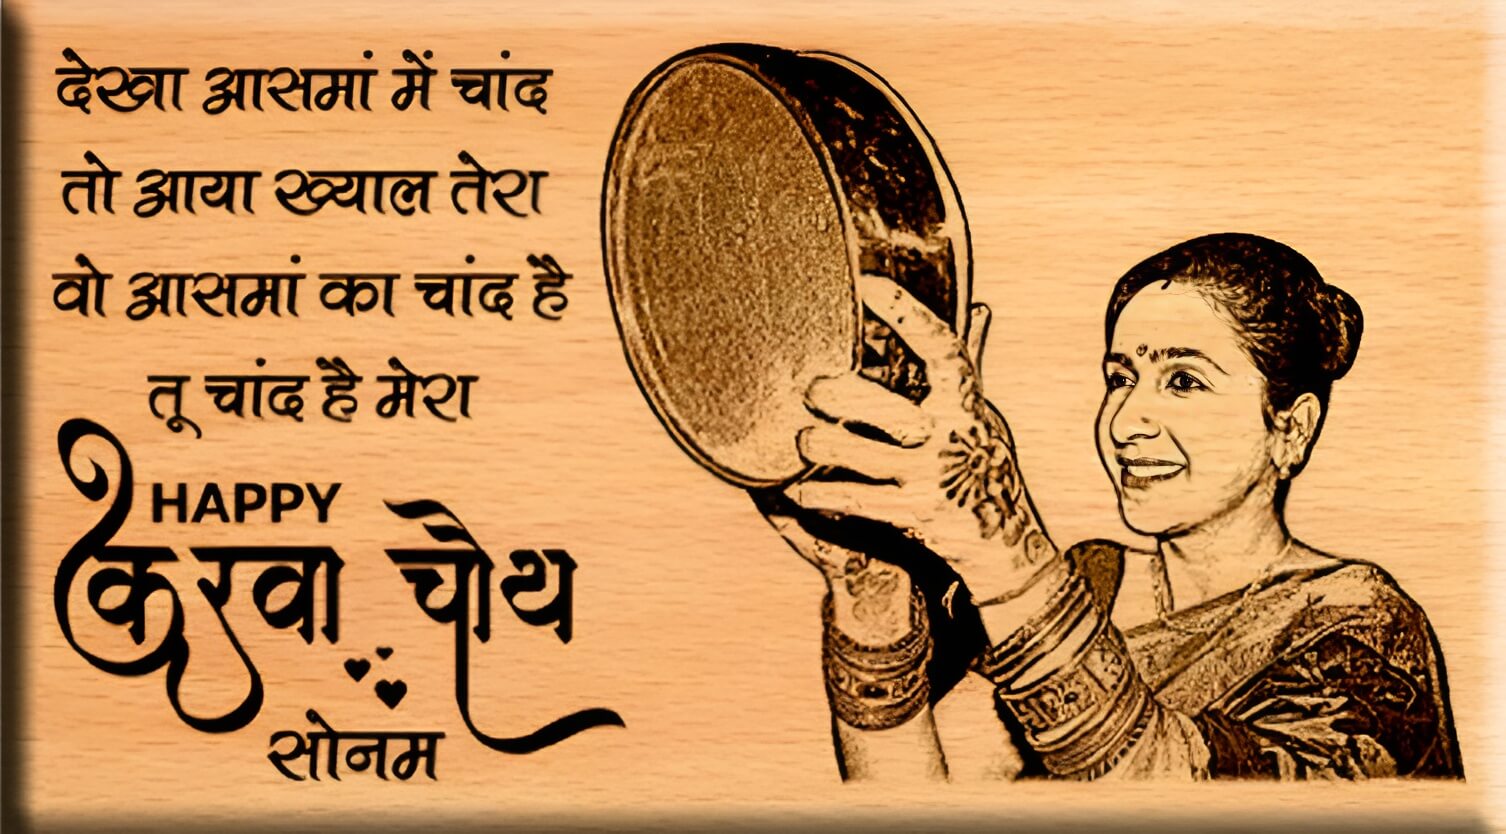 देखा आसमां में चांद
तो आया ख्याल तेरा
वो आसमां का चांद है
तू चांद है मेरा
HAPPY
करवा चौथ
सोनम